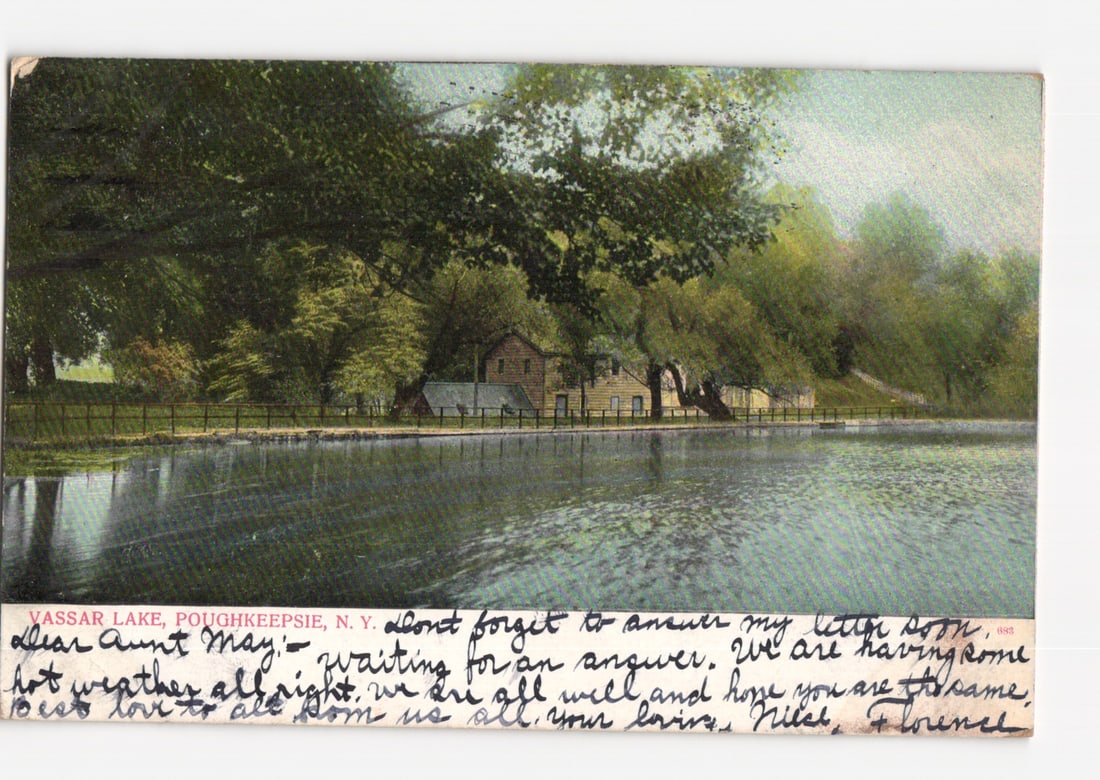 VASSAR LAKE, POUGHKEEPSIE, N. Y. Dont forget to answer my letter soon. 683
Dear Aunt May:- Waiting for an answer. We are having some
hot weather all right. We are all well and hope you are the same.
Best love to all from us all. Your loving Niece, Florence